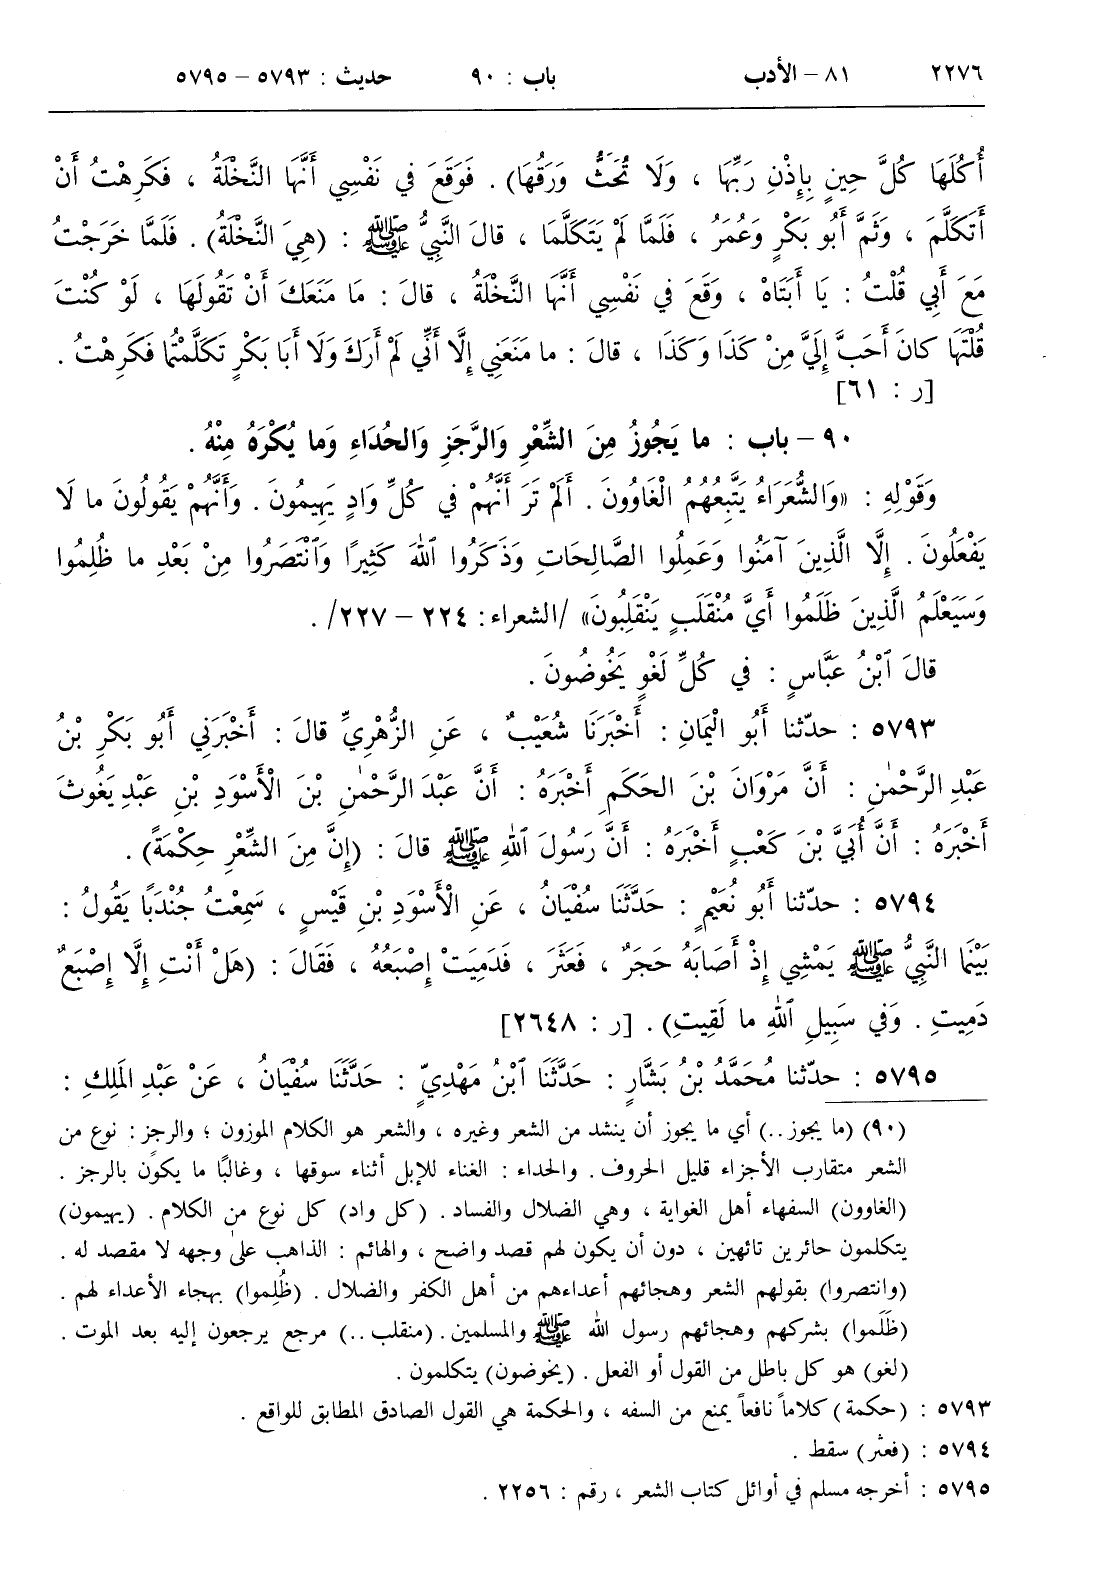 ٢٢٧٦ ٨١ – الأدب باب : ٩٠ حديث : ٥٧٩٣ – ٥٧٩٥
أُكُلَهَا كُلَّ حِينٍ بِإِذْنِ رَبِّهَا ، وَلَا تُحَتُّ وَرَقُهَا) . فَوَقَعَ في نَفْسِي أَنَّهَا النَّخْلَةُ ، فَكَرِهْتُ أَنْ
أَتَكَلَّمَ ، وَثَمَّ أَبُو بَكْرٍ وَعُمَرُ ، فَلَمَّا لَمْ يَتَكَلَّمَا ، قالَ النَّبِيُّ ﷺ : (هِيَ النَّخْلَةُ) . فَلَمَّا خَرَجْتُ
مَعَ أَبِي قُلْتُ : يَا أَبَتَاهْ ، وَقَعَ في نَفْسِي أَنَّهَا النَّخْلَةُ ، قالَ : مَا مَنَعَكَ أَنْ تَقُولَهَا ، لَوْ كُنْتَ
قُلْتَهَا كانَ أَحَبَّ إِلَيَّ مِنْ كَذَا وَكَذَا ، قالَ : ما مَنَعَنِي إِلَّا أَنِّي لَمْ أَرَكَ وَلَا أَبَا بَكْرٍ تَكَلَّمْتُمَا فَكَرِهْتُ .
[ر : ٦١]
٩٠ – باب : ما يَجُوزُ مِنَ الشِّعْرِ وَالرَّجَزِ وَالحُدَاءِ وَما يُكْرَهُ مِنْهُ .
وَقَوْلِهِ : «وَالشُّعَرَاءُ يَتَّبِعُهُمُ الْغَاوُونَ . أَلَمْ تَرَ أَنَّهُمْ في كُلِّ وَادٍ يَهِيمُونَ . وَأَنَّهُمْ يَقُولُونَ ما لَا
يَفْعَلُونَ . إِلَّا الَّذِينَ آمَنُوا وَعَمِلُوا الصَّالِحَاتِ وَذَكَرُوا اللهَ كَثِيرًا وَٱنْتَصَرُوا مِنْ بَعْدِ ما ظُلِمُوا
وَسَيَعْلَمُ الَّذِينَ ظَلَمُوا أَيَّ مُنْقَلَبٍ يَنْقَلِبُونَ» /الشعراء: ٢٢٤ – ٢٢٧/ .
قالَ ٱبْنُ عَبَّاسٍ : في كُلِّ لَغْوٍ يَخُوضُونَ .
٥٧٩٣ : حدّثنا أَبُو الْيَمَانِ : أَخْبَرَنَا شُعَيْبٌ ، عَنِ الزُّهْرِيِّ قالَ : أَخْبَرَنِي أَبُو بَكْرِ بْنُ
عَبْدِ الرَّحْمٰنِ : أَنَّ مَرْوَانَ بْنَ الحَكَمِ أَخْبَرَهُ : أَنَّ عَبْدَ الرَّحْمٰنِ بْنَ الْأَسْوَدِ بْنِ عَبْدِ يَغُوثَ
أَخْبَرَهُ : أَنَّ أُبَيَّ بْنَ كَعْبٍ أَخْبَرَهُ : أَنَّ رَسُولَ اللهِ ﷺ قالَ : (إِنَّ مِنَ الشِّعْرِ حِكْمَةً) .
٥٧٩٤ : حدّثنا أَبُو نُعَيْمٍ : حَدَّثَنَا سُفْيَانُ ، عَنِ الْأَسْوَدِ بْنِ قَيْسٍ ، سَمِعْتُ جُنْدَبًا يَقُولُ :
بَيْنَمَا النَّبِيُّ ﷺ يَمْشِي إِذْ أَصَابَهُ حَجَرٌ ، فَعَثَرَ ، فَدَمِيَتْ إِصْبَعُهُ ، فَقَالَ : (هَلْ أَنْتِ إِلَّا إِصْبَعٌ
دَمِيتِ . وَفي سَبِيلِ ٱللهِ ما لَقِيتِ) . [ر : ٢٦٤٨]
٥٧٩٥ : حدّثنا مُحَمَّدُ بْنُ بَشَّارٍ : حَدَّثَنَا ٱبْنُ مَهْدِيٍّ : حَدَّثَنَا سُفْيَانُ ، عَنْ عَبْدِ المَلِكِ :
(٩٠) (ما يجوز..) أي ما يجوز أن ينشد من الشعر وغيره ، والشعر هو الكلام الموزون ؛ والرجز : نوع من
الشعر متقارب الأجزاء قليل الحروف . والحداء : الغناء للإبل أثناء سوقها ، وغالبًا ما يكون بالرجز .
(الغاوون) السفهاء أهل الغواية ، وهي الضلال والفساد . (كل واد) كل نوع من الكلام . (يهيمون)
يتكلمون حائرين تائهين ، دون أن يكون لهم قصد واضح ، والهائم : الذاهب على وجهه لا مقصد له .
(وانتصروا) بقولهم الشعر وهجائهم أعداءهم من أهل الكفر والضلال . (ظُلِموا) بهجاء الأعداء لهم .
(ظَلَموا) بشركهم وهجائهم رسول الله ﷺ والمسلمين . (منقلب ..) مرجع يرجعون إليه بعد الموت .
(لغو) هو كل باطل من القول أو الفعل . (يخوضون) يتكلمون .
٥٧٩٣ : (حكمة) كلاماً نافعاً يمنع من السفه ، والحكمة هي القول الصادق المطابق للواقع .
٥٧٩٤ : (فعثر) سقط .
٥٧٩٥ : أخرجه مسلم في أوائل كتاب الشعر ، رقم : ٢٢٥٦ .